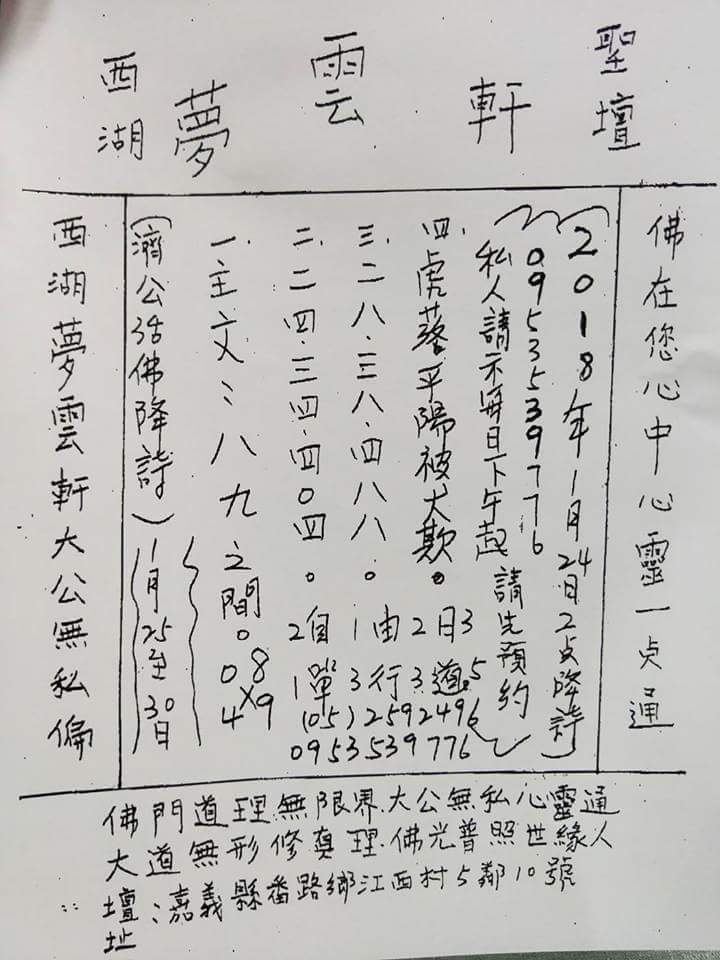 西湖夢雲軒聖壇
佛在您心中心靈一点通
(2018年1月24日2点降詩)
0953539776
私人請示每日下午起 請先預約
四.虎落平陽被犬欺。
三.二八.三八.四八八。
二.二四.三四.四0四。
一.主文:八九之間。
08
×
49
2自1由2日3
1單3行3道.5
(05)2592496
0953539776
(濟公活佛降詩)
1月25至30日
西湖夢雲軒大公無私偏
佛門道理.無限界.大公無私心靈通
大道無形修真理.佛光普照世緣人
壇址:嘉義縣番路鄉江西村5鄰10號